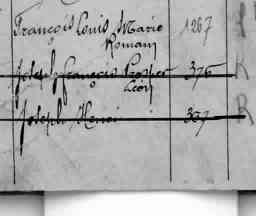 François Louis Marie 1267
Romain
Joseph François Prosper 376 R
Léon
Joseph Henri 337 R